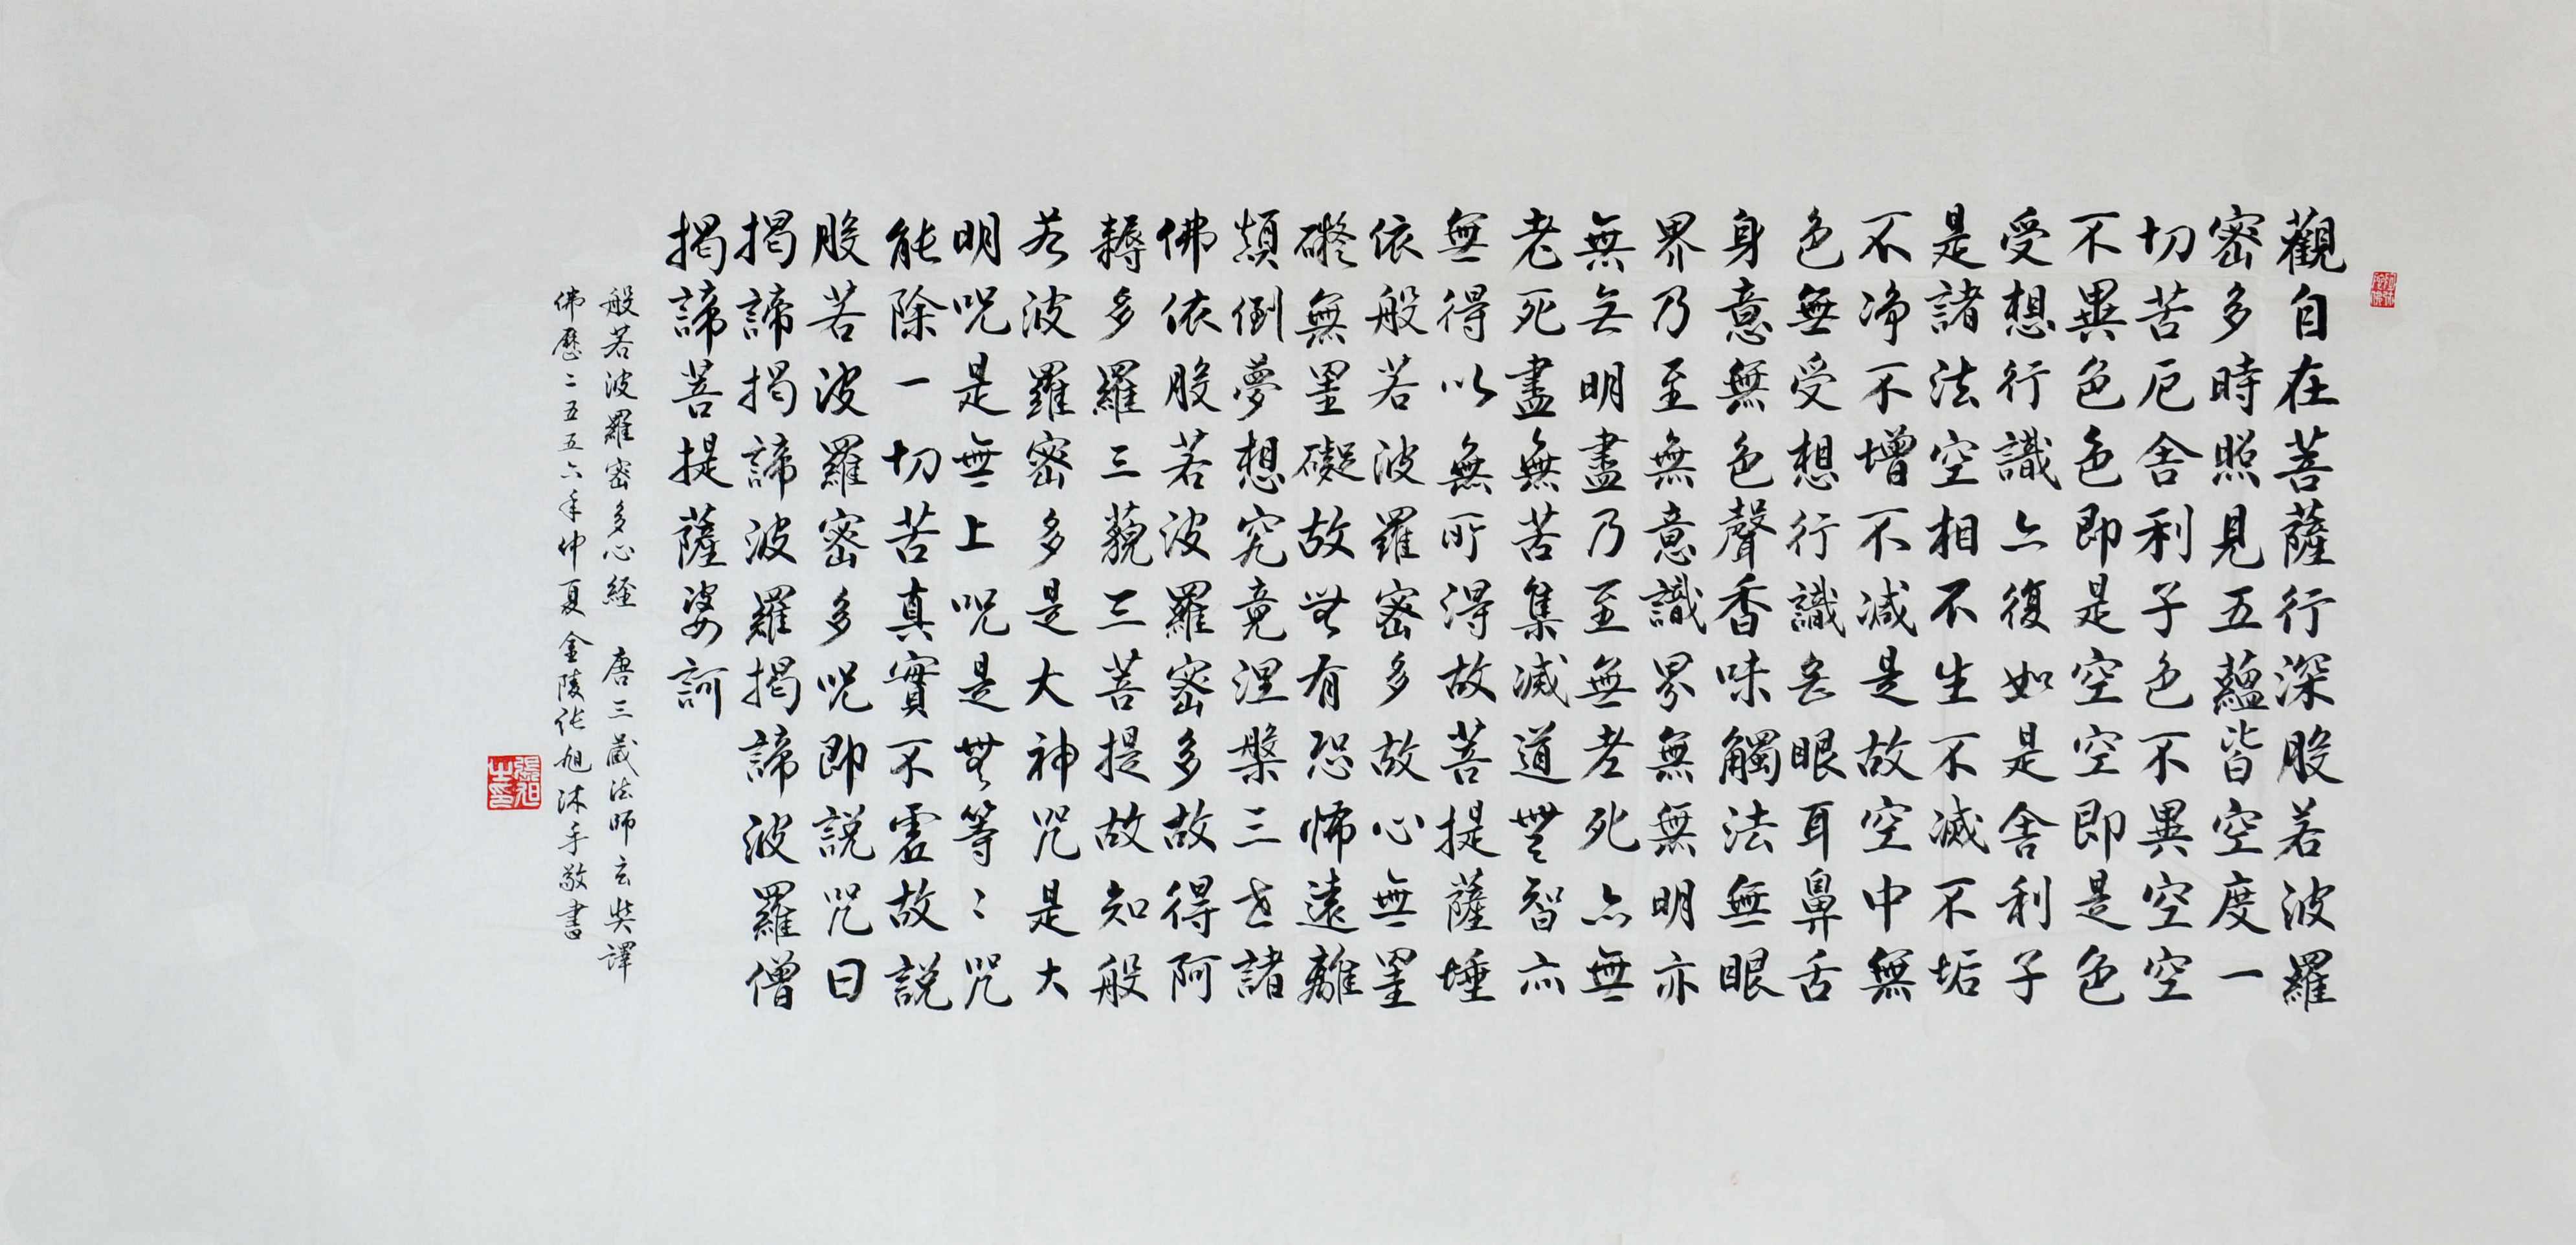 觀自在菩薩行深般若波羅
密多時照見五蘊皆空度一
切苦厄舍利子色不異空空
不異色色即是空空即是色
受想行識亦復如是舍利子
是諸法空相不生不滅不垢
不净不增不減是故空中無
色無受想行識無眼耳鼻舌
身意無色聲香味觸法無眼
界乃至無意識界無無明亦
無无明盡乃至無老死亦無
老死盡無苦集滅道無智亦
無得以無所得故菩提薩埵
依般若波羅密多故心無罣
礙無罣礙故無有恐怖遠離
顛倒夢想究竟涅槃三世諸
佛依般若波羅密多故得阿
耨多羅三藐三菩提故知般
若波羅密多是大神咒是大
明呪是無上呪是無等〻咒
能除一切苦真實不虛故説
般若波羅密多呪即説咒曰
揭諦揭諦波羅揭諦波羅僧
揭諦菩提薩婆訶
般若波羅密多心経 唐三藏法師玄奘譯
佛歷二五五六年仲夏金陵張旭沐手敬書
張旭之印